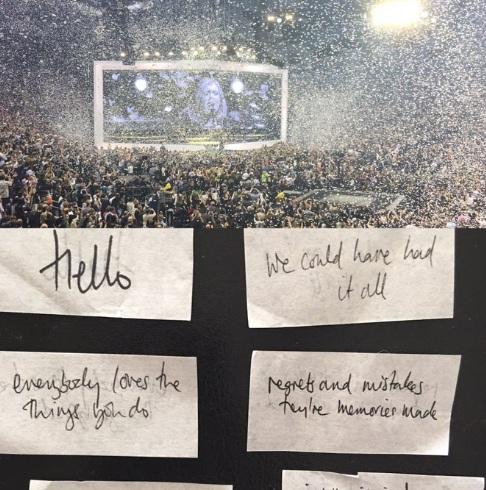 Hello
We could have had
it all
everybody loves the
things you do
regrets and mistakes
they're memories made